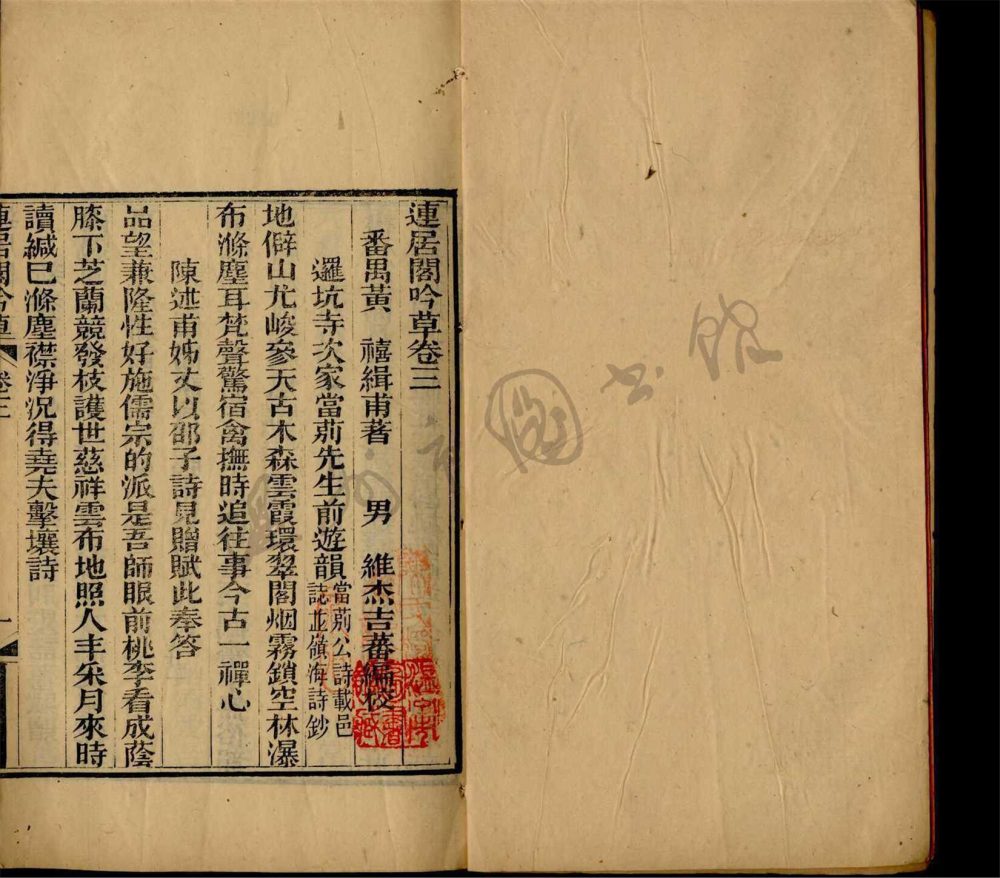 連居閣吟草卷三
番禺黃　禧緝甫著　男　維杰吉蕃編校
邏坑寺次家當荊先生前遊韻當荊公詩載邑誌並嶺海詩鈔
地僻山尤峻參天古木森雲霞環翠閣烟霧鎖空林瀑
布滌塵耳梵聲驚宿禽撫時追往事今古一禪心
陳述甫姊丈以邵子詩見贈賦此奉答
品望兼隆性好施儒宗的派是吾師眼前桃李看成蔭
膝下芝蘭競發枝護世慈祥雲布地照人丰采月來時
讀緘已滌塵襟淨況得堯夫擊壤詩
連居閣吟草　卷三　一